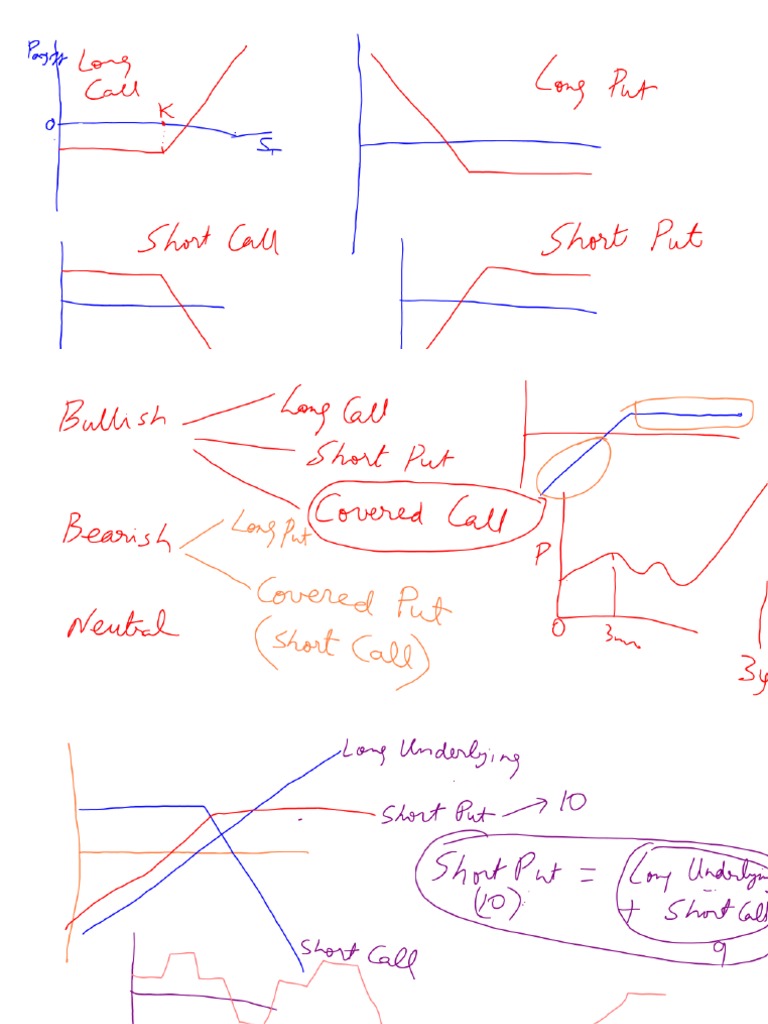 Payoff
Long
Call
K
0
S_T
Long Put
Short Call
Short Put
Bullish
Long Call
Short Put
Covered Call
Bearish
Long Put
Covered Put
(Short Call)
Neutral
P
0
3m
3y
Long Underlying
Short Put → 10
Short Put = Long Underlying
(10) + Short Call
9
Short Call